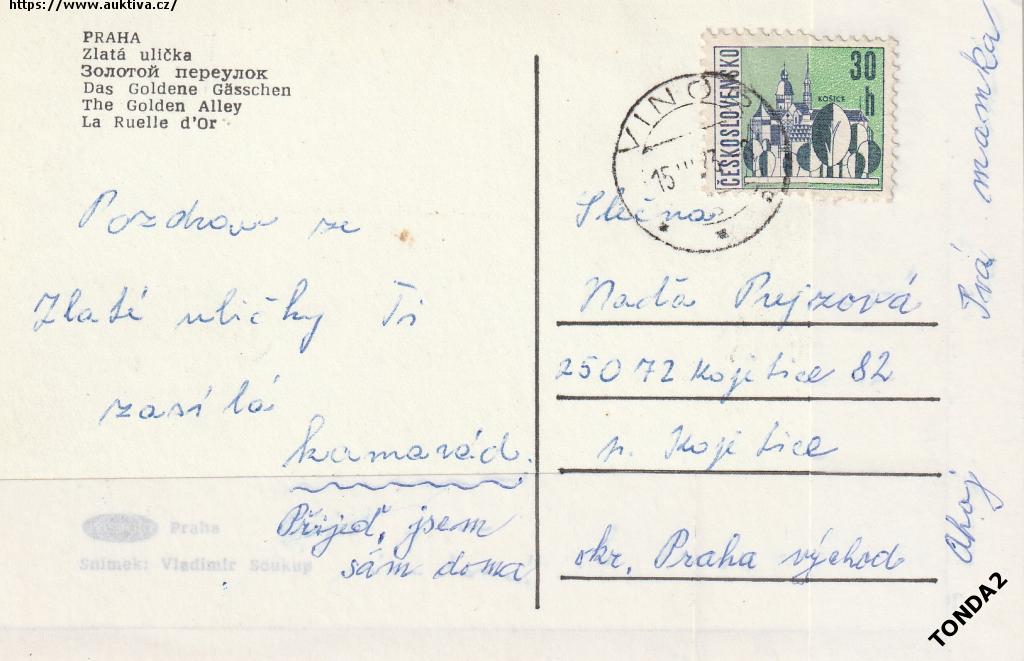 https://www.auktiva.cz/
PRAHA
Zlatá ulička
Золотой переулок
Das Goldene Gässchen
The Golden Alley
La Ruelle d'Or
Pozdrav ze
Zlaté uličky Ti
zasílá
kamarád.
Přijeď, jsem
sám doma
Praha
Snímek: Vladimír Soukup
ČESKOSLOVENSKO
30
h
KOŠICE
VINOŘ
15
Slečna
Naďa Prejzová
25072 Kojetice 82
p. Kojetice
okr. Praha východ
Ahoj Tvá mamka
TONDA2